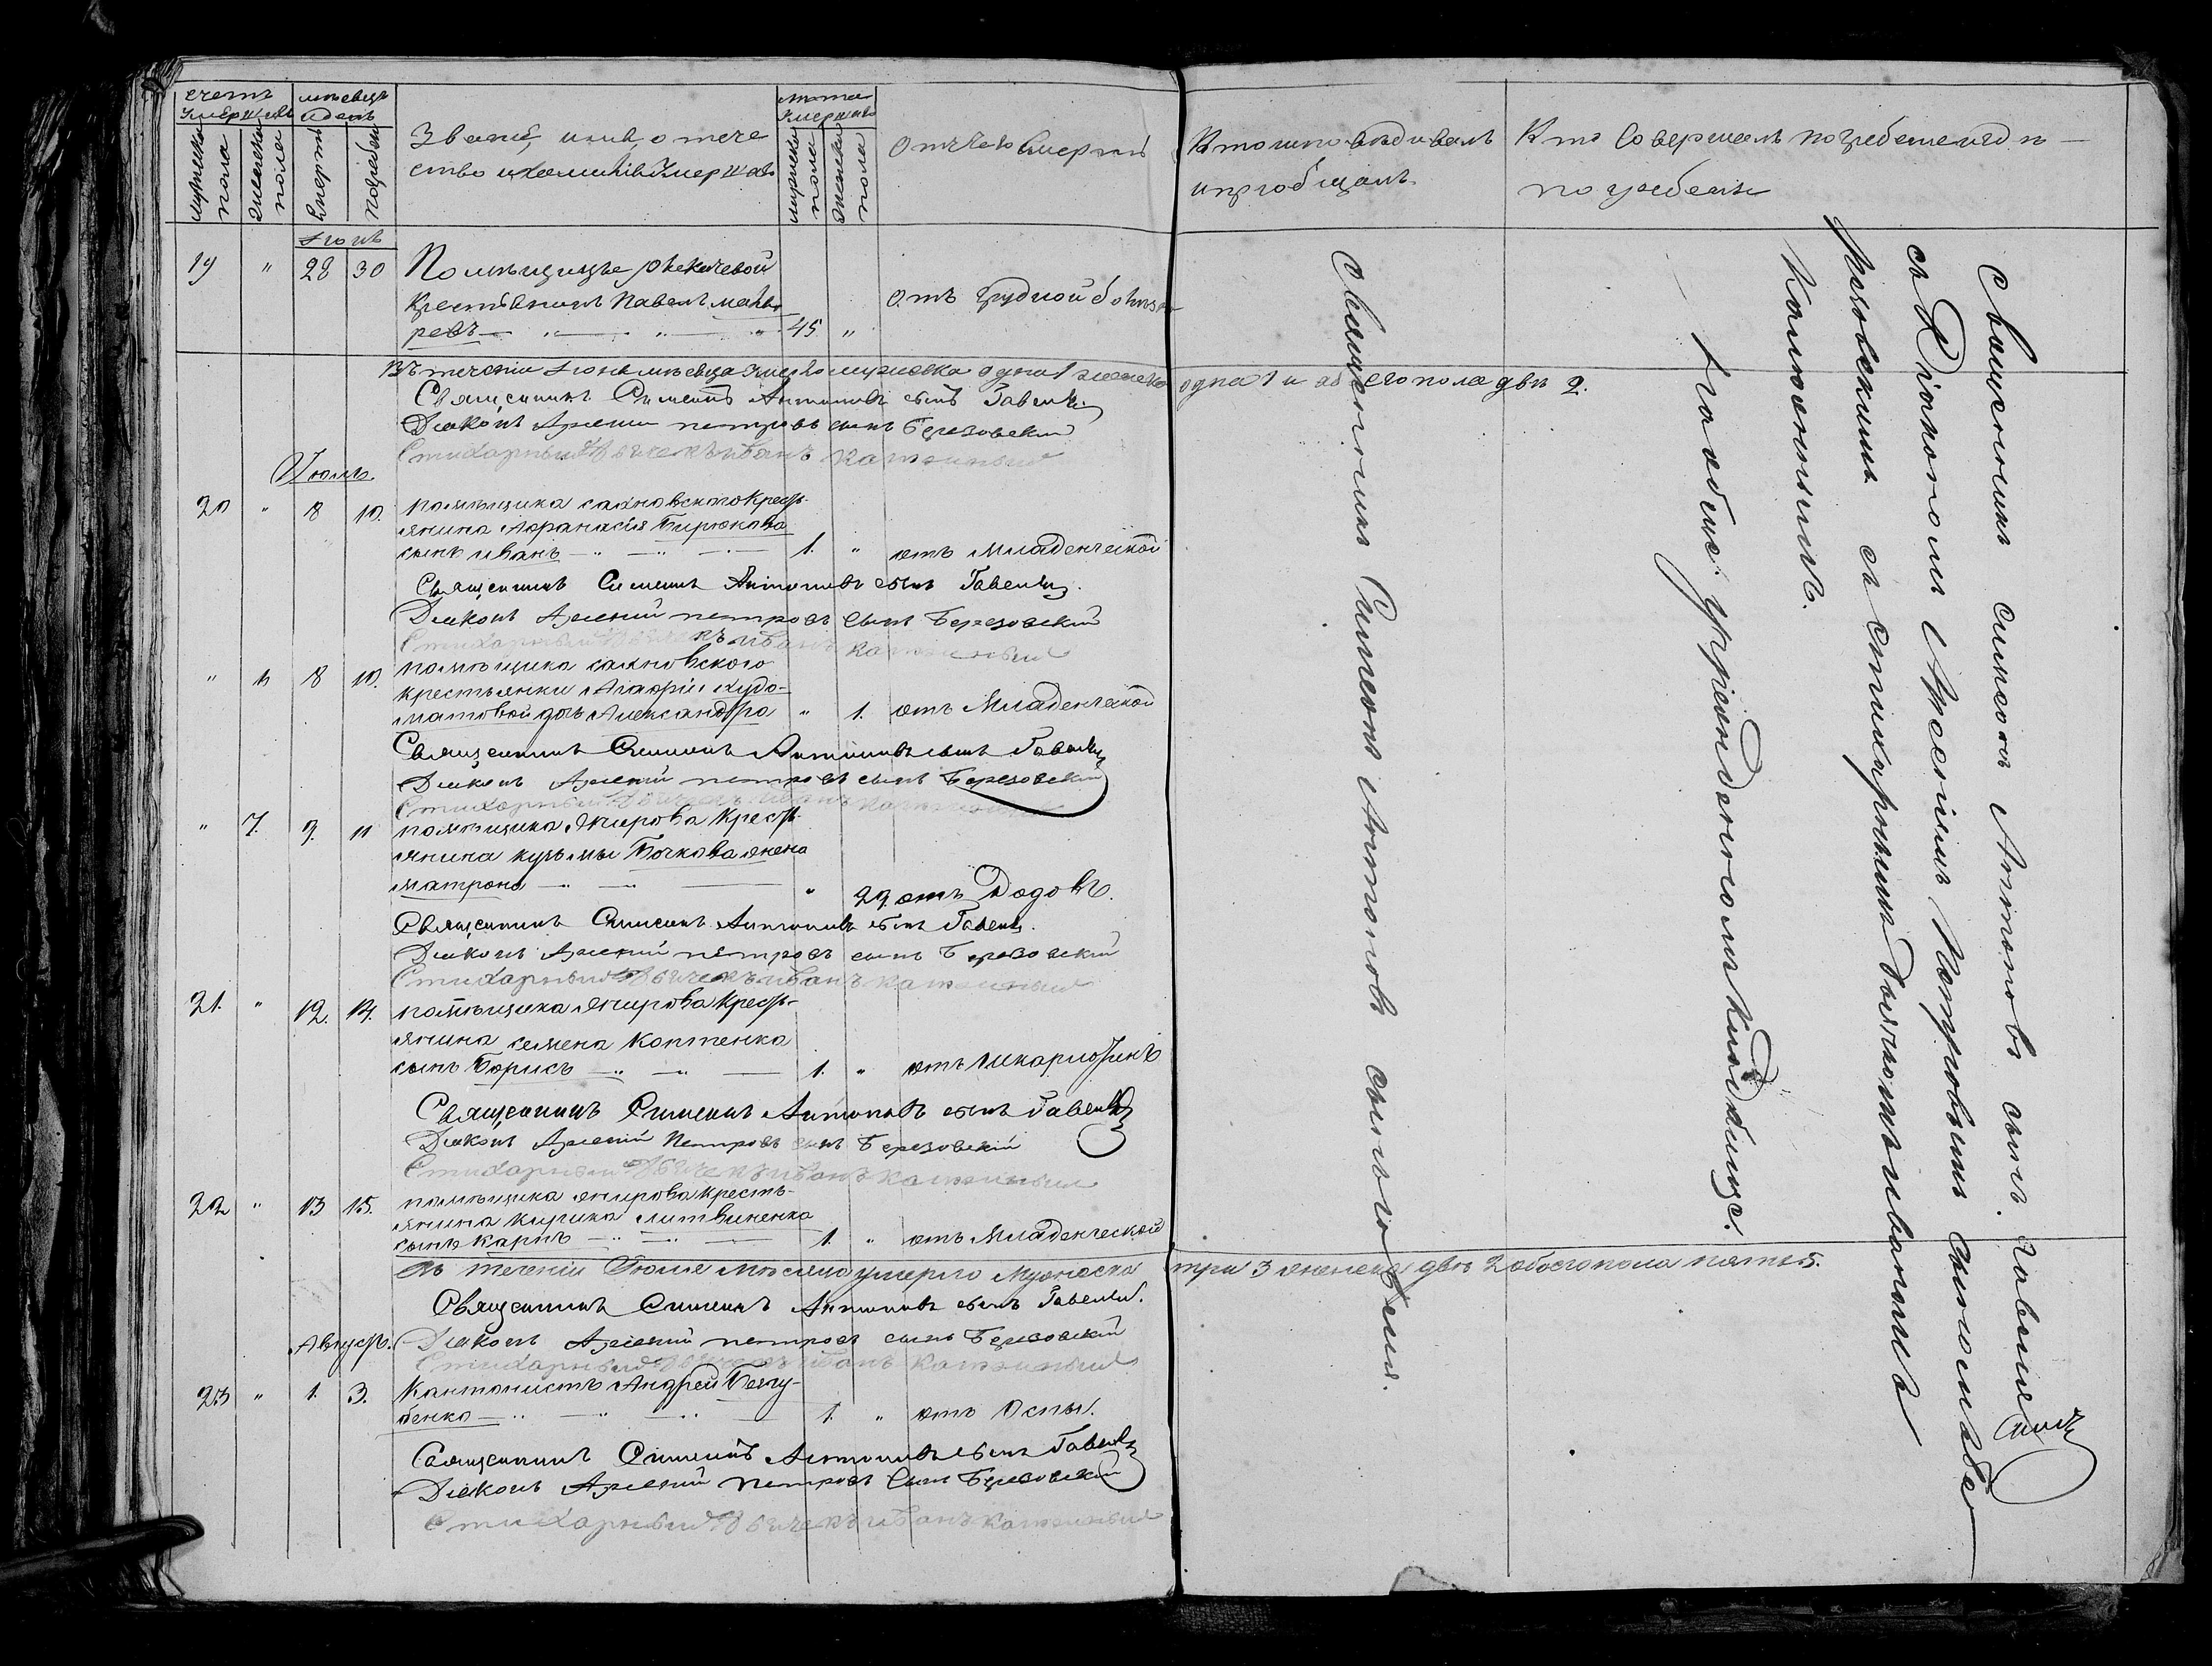 счетъ умершихъ
мѣсецъ и день
мужеска пола
женска пола
смерть
погребен
Званіе, имя, отече
ство и фамилія умершаго
лѣта умершаго
мужеска пола
женска пола
Отчего умеръ
Кто исповѣдивалъ
и пріобщалъ
Кто Совершалъ погребеніе и гдѣ
погребены
Іюнь
19 " 28 30 Помѣщицы
крестьянинъ Павелъ
ревъ 45 " Отъ грудной болѣзни
Въ теченіи Іюня мѣсеца умерло мужеска одна 1 женска одна 1 и обоего пола двѣ 2.
Священникъ Симеонъ Антоновъ сынъ Гавеля
Діаконъ Арсеній петровъ сынъ Березовскій
Стихарный Дьячекъ Иванъ
Іюль.
20 " 8 10. помѣщика сахновского крест-
янина Афранасія Бирюкова
сынъ иванъ 1. " отъ Младенческой
Священникъ Симеонъ Антоновъ сынъ Гавеля.
Діаконъ Арсеній петровъ сынъ Березовскій
Стихарный Дьячекъ Иванъ
" 6 8 10. помѣщика сахновского
крестьянки Агафіи худо-
матовой дочь Александра " 1. отъ Младенческой
Священникъ Симеонъ Антоновъ сынъ Гавеля
Діаконъ Арсеній петровъ сынъ Березовскій
Стихарный Дьячекъ Иванъ
" 7. 9. 11 помѣщика Якирова крест-
янина кузьмы Бочкова жена
матрона " 29. отъ Родовъ.
Священникъ Симеонъ Антоновъ сынъ Гавеля.
Діаконъ Арсеній петровъ сынъ Березовскій
Стихарный Дьячекъ Иванъ
21. " 12. 14. помѣщика Якирова крест-
янина семена Коптенка
сынъ Борисъ 1. " отъ
Священникъ Симеонъ Антоновъ сынъ Гавеля
Діаконъ Арсеній Петровъ сынъ Березовскій
Стихарный Дьячекъ Иванъ
22 " 13 15. помѣщика якирова кресть-
янина кирика Литвиненка
сынъ карпъ 1. " отъ Младенческой
Въ теченіи Іюля мѣсяца умерло Мужеска три 3 женска двѣ 2 обоего пола пять 5.
Священникъ Симеонъ Антоновъ сынъ Гавеля.
Августъ. Діаконъ Арсеній петровъ сынъ Березовскій
Стихарный Дьячекъ Иванъ
23 " 1. 3. Кантонистъ Андрей
бенко 1. " отъ Оспы.
Священникъ Симеонъ Антоновъ сынъ Гавеля
Діаконъ Арсеній петровъ Сынъ Березовскій
Стихарный Дьячекъ Иванъ
Священникъ Симеонъ Антоновъ сынъ Гавеля.
Священникъ симеонъ Антоновъ сынъ Гавеля
съ Діакономъ Арсеніемъ Петровымъ сыномъ Бе
резовскимъ съ стихарнымъ Дьячкомъ иваномъ
на общемъ